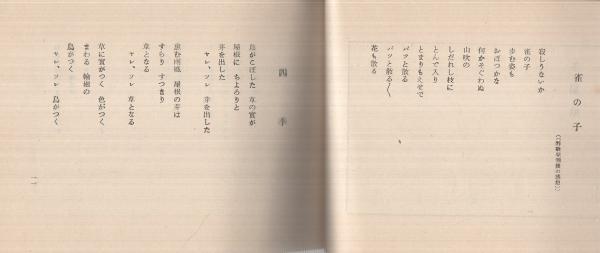 雀の子
寂しうないか
雀の子
歩む姿も
おぼつかな
何かそぐわぬ
山吹の
しだれし枝に
とんで入り
とまりもえせで
パッと散る
パッと散る〱
花も散る
四季
鳥がこぼした 草の實が
屋根に ちよろりと
芽を出した
ヤレ、ソレ 芽を出した
屋根の芽は
すらり すつきり
草となる
ヤレ、ソレ 草となる
草に實がつく 色がつく
まわる 輪廻の
鳥がつく
ヤレ、ソレ 鳥がつく
一一